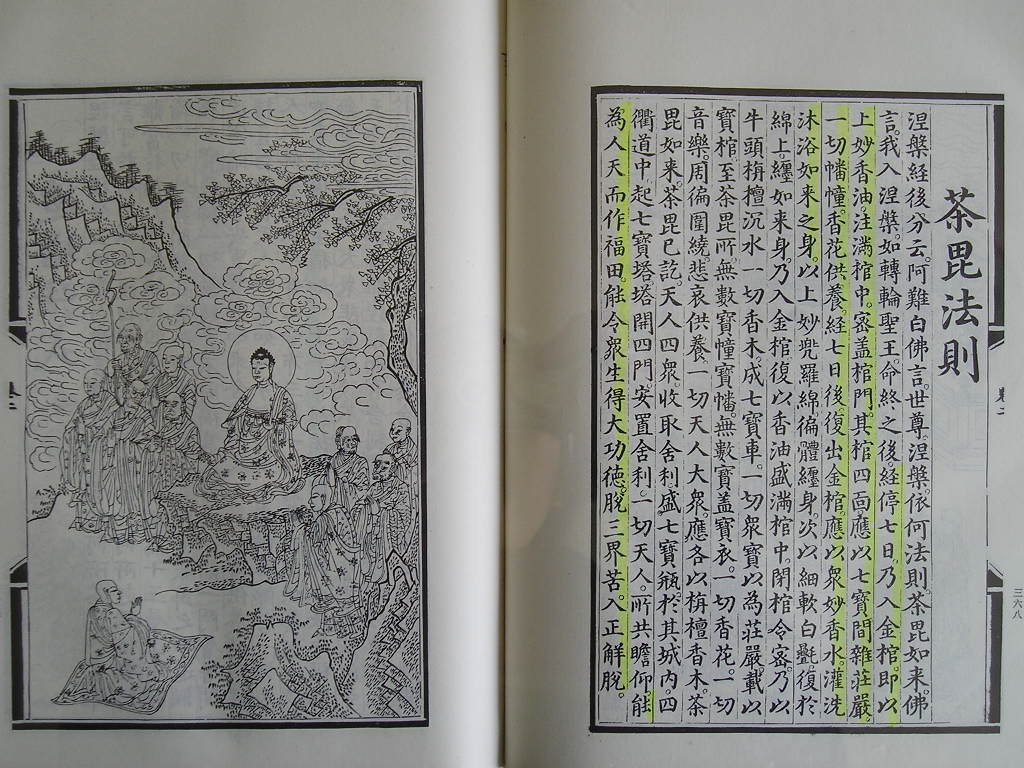 茶毘法則
涅槃経後分云。阿難白佛言。世尊。涅槃。依何法則。茶毘如来。佛
言。我入涅槃。如轉輪聖王。命終之後。経停七日。乃入金棺。即以
上妙香油注滿棺中。密盖棺門。其棺四面應以七寶間雜莊嚴。
一切幡幢。香花供養。経七日後。復出金棺。應以衆妙香水。灌洗
沐浴如来之身。以上妙兠羅綿徧體纏身。次以細軟白㲲復於
綿上。纏如来身。乃入金棺。復以香油盛滿棺中。閉棺令密。乃以
牛頭栴檀沉水一切香木成七寶車。一切衆寶以為莊嚴。載以
寶棺至茶毘所。無數寶幢寶幡。無數寶盖寶衣。一切香花。一切
音樂。周徧圍繞。悲哀供養。一切天人大衆。應各以栴檀香木。茶
毘如来。茶毘已訖。天人四衆。收取舍利盛七寶瓶。於其城内。四
衢道中起七寶塔。塔開四門。安置舍利。一切天人。所共瞻仰。能
為人天而作福田。能令衆生得大功德。脱三界苦。入正解脱。
卷二
三六八